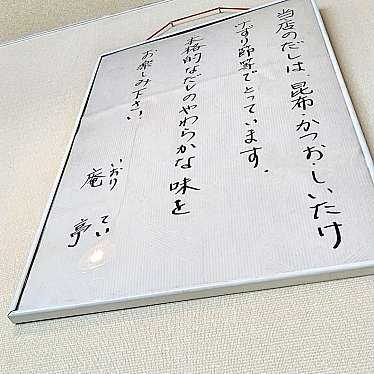 当店のだしは、昆布・かつお・しいたけ
むすり節等でとっています。
本格的なだしのやわらかな味を
お楽しみ下さい
いおり てい
庵 亭